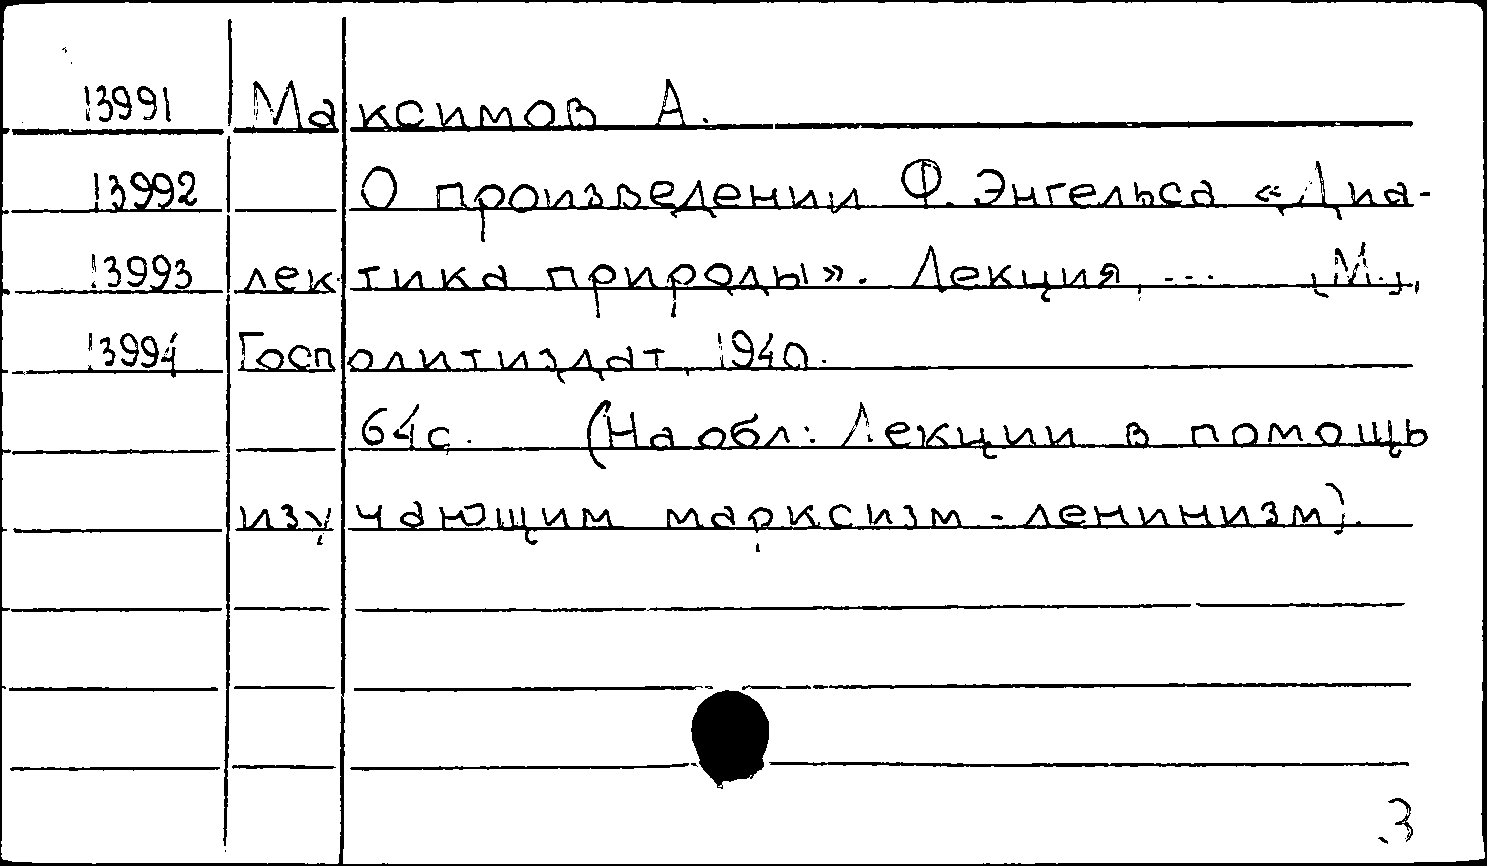 13991 Максимов А.
13992 О произведении Ф. Энгельса «Диа-
13993 лектика природы». Лекция, ... [М.],
13994 Госполитиздат, 1940.
64с. (На обл: Лекции в помощь
изучающим марксизм-ленинизм).
3